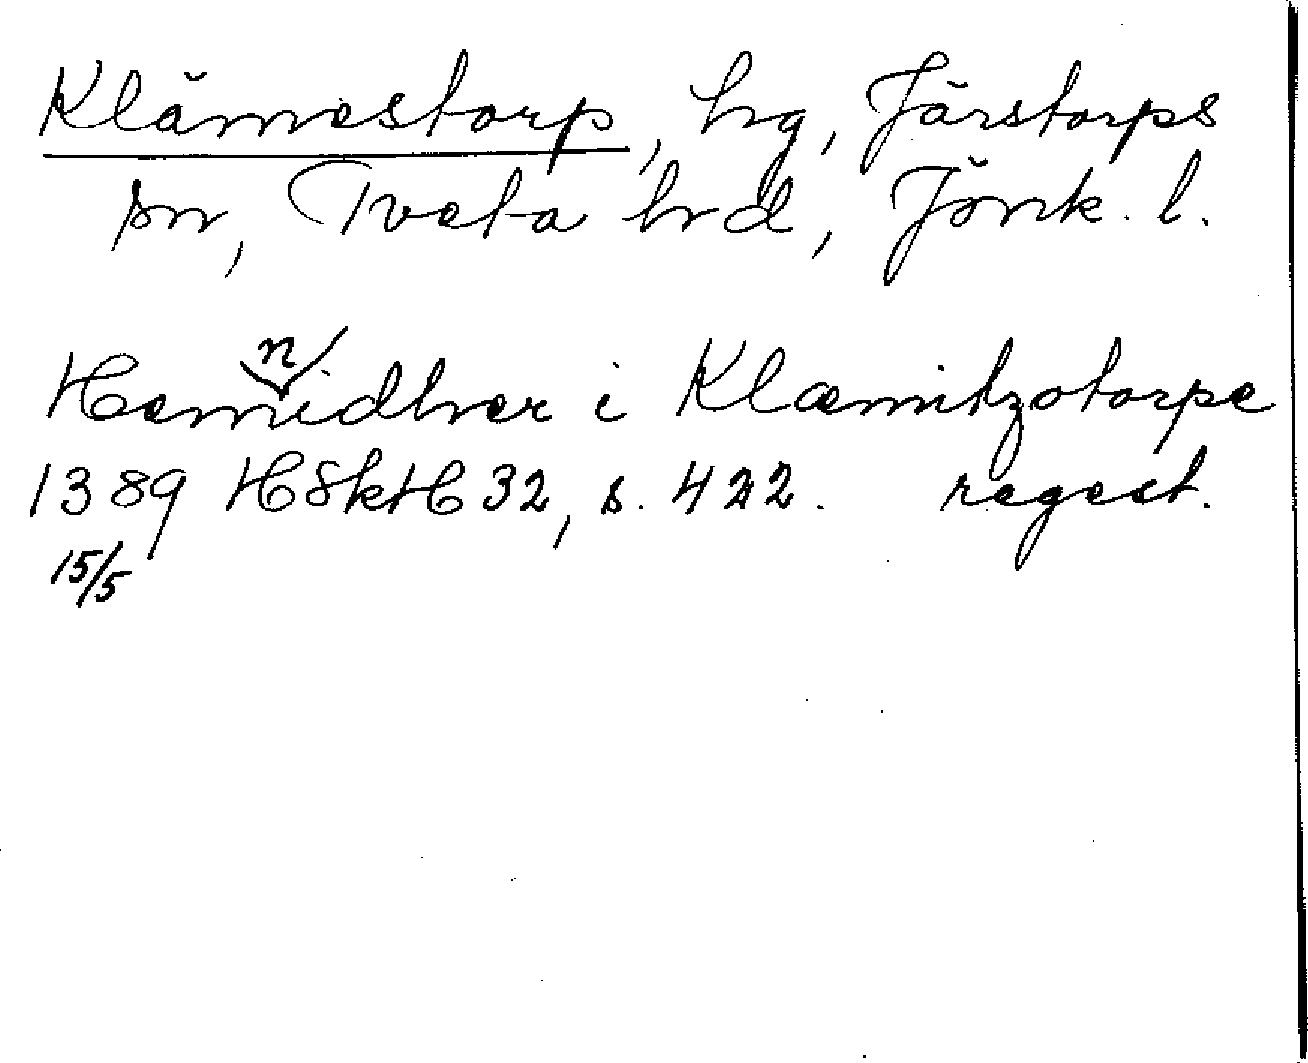 Klämestorp, hg, Järstorps
sn, Tveta hd, Jönk. l.
n
Hemidher i Klæmitzotorpe
1389 HSkH 32, s. 422. regest.
15/5